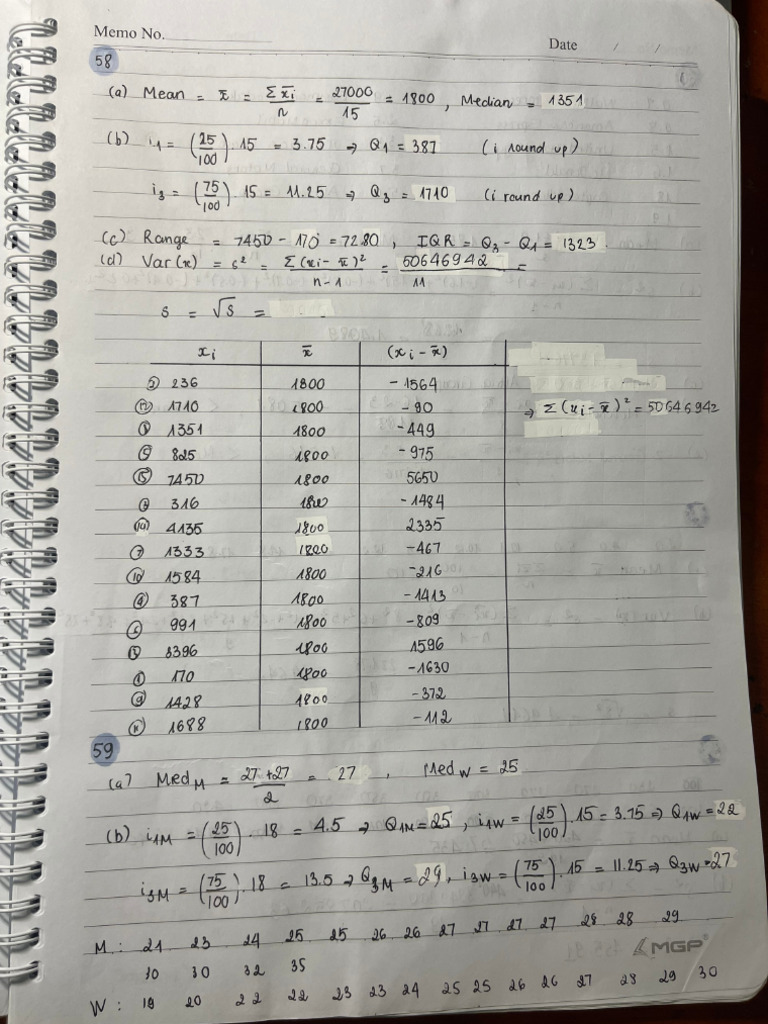 Memo No.
Date / /
58
(a) Mean = x̄ = Σx̄i/n = 27000/15 = 1800, Median = 1351
(b) i1 = (25/100) . 15 = 3.75 ⇒ Q1 = 387 (i round up)
i3 = (75/100) . 15 = 11.25 ⇒ Q3 = 1710 (i round up)
(c) Range = 7450 - 170 = 7280, IQR = Q3 - Q1 = 1323
(d) Var(x) = s² = Σ(xi - x̄)²/n-1 = 50646942/11 =
s = √s =
xi x̄ (xi - x̄)
236 1800 -1564
1710 1800 -90 ⇒ Σ(xi - x̄)² = 50646942
1351 1800 -449
825 1800 -975
7450 1800 5650
316 1800 -1484
4135 1800 2335
1333 1800 -467
1584 1800 -216
387 1800 -1413
991 1800 -809
3396 1800 1596
170 1800 -1630
1428 1800 -372
1688 1800 -112
59
(a) MedM = 27+27/2 = 27, MedW = 25
(b) i1M = (25/100) . 18 = 4.5 ⇒ Q1M = 25, i1W = (25/100) . 15 = 3.75 ⇒ Q1W = 22
i3M = (75/100) . 18 = 13.5 ⇒ Q3M = 29, i3W = (75/100) . 15 = 11.25 ⇒ Q3W = 27
M: 21 23 24 25 25 26 26 27 27 27 27 28 28 29
MGP
30 30 32 35
W: 19 20 22 22 23 23 24 25 25 26 26 27 28 29 30